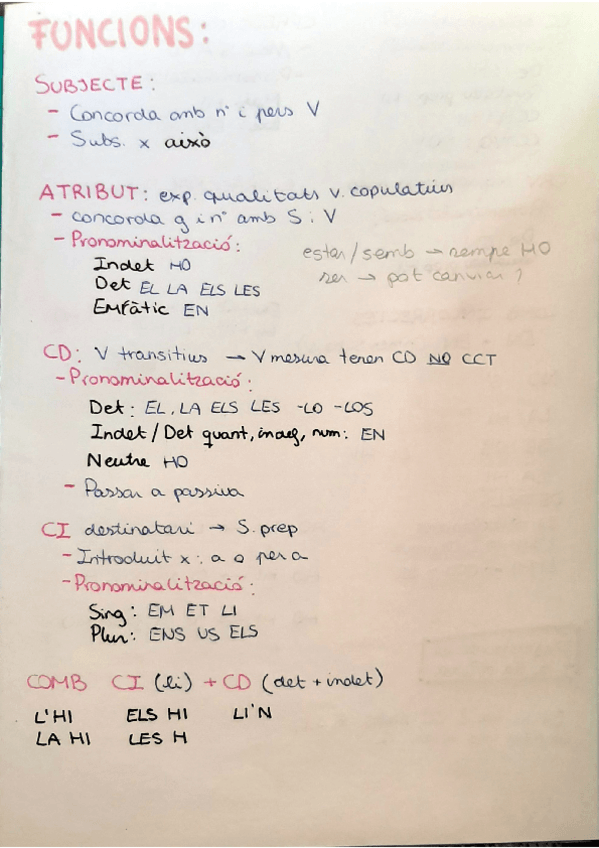 FUNCIONS:
SUBJECTE:
- Concorda amb nº i pers V
- Subs. x això
ATRIBUT: exp. qualitats v. copulatius
- concorda g i nº amb S i V
- Pronominalització:
Indet HO
Det EL LA ELS LES
Emfàtic EN
estar/semb → sempre HO
ser → pot canviar ?
CD: V transitius → V mesura tenen CD NO CCT
- Pronominalització:
Det: EL, LA ELS LES -LO -LOS
Indet/Det quant, indef, num: EN
Neutre HO
- Passar a passiva
CI destinatari → S. prep
- Introduït x: a o per a
- Pronominalització:
Sing: EM ET LI
Plur: ENS US ELS
COMB CI (li) + CD (det + indet)
L'HI ELS HI LI'N
LA HI LES H